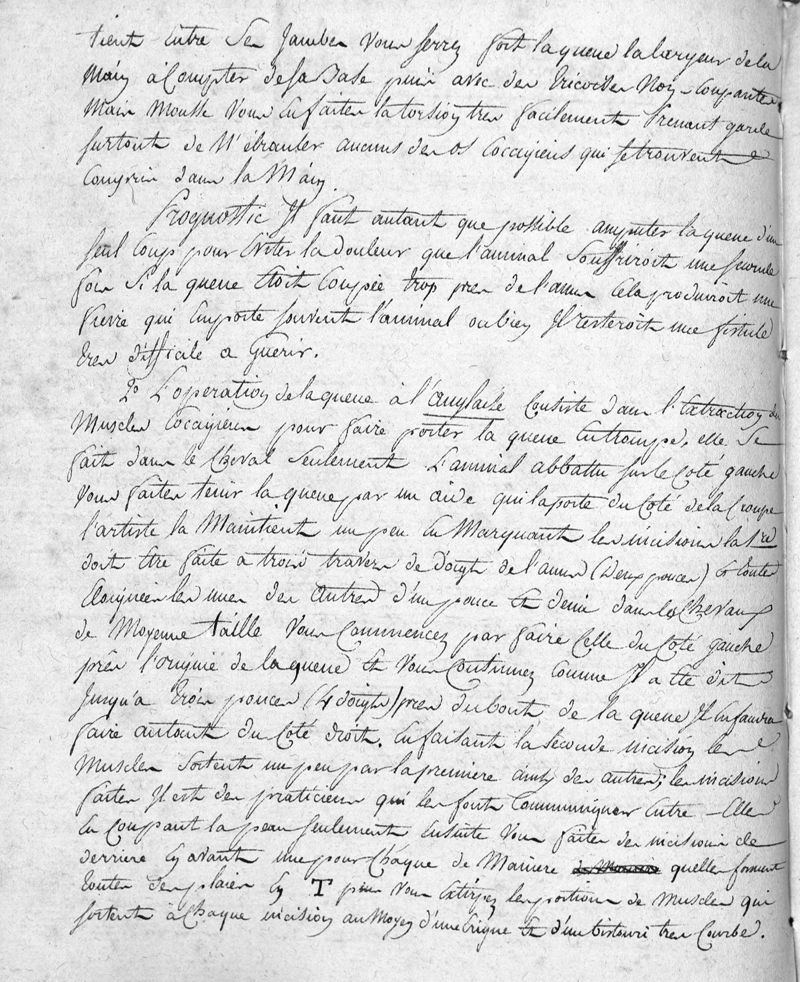 tient entre Ses Jambes Vous serrez fort la queue la largeur de la
Main a Compter de sa Base puis avec des tricoises Non-Coupantes
Mais Mousse Vous En faites la torsion tres facilement Prenant garde
surtout de N'ébranler aucuns des os Coccigiens qui se trouvent
Compris dans la Main.
Prognostic Il faut autant que possible amputer la queue d'un
seul Coup pour Eviter la douleur que l'animal Souffriroit une seconde
fois Si la queue Etoit Coupée trop pres de l'anus Cela produiroit une
fievre qui Emporte souvent l'animal ou bien Il resteroit une fistule
tres difficile a Guerir.
2º L'operation de la queue à l'anglaise Consiste dans l'Extraction des
Muscles Coccigiens pour faire porter la queue En trompe, elle Se
fait dans le Cheval Seulement. L'animal abbattu sur le Coté gauche
Vous faites tenir la queue par un aide qui la porte du Coté de la Croupe
l'artiste la Maintient un peu En Marquant les incisions la 1re
doit Etre faite a trois travers de doigts de l'anus (Deux pouces) & toutes
Eloignées les unes des Autres d'un pouce Et demie dans les Chevaux
de Moyenne taille Vous Commencez par faire Celle du Coté gauche
près l'origine de la queue Et Vous Continuez Comme Il a Eté dit
Jusqu'a trois pouces (4 doigts) pres du bout de la queue Il En faudra
faire autant du Coté droit. En faisant la seconde incision les
Muscles sortent un peu par la premiere ainsi des autres; les incisions
faites Il est des praticiens qui les font Communiquer Entre-Elles
En Coupant la peau seulement Ensuite Vous faites des incisions de
derriere En avant une pour Chaque de Maniere quelles forment
toutes des plaies En T puis Vous Extirpez les portions de Muscles qui
sortent à Chaque incision au Moyen d'une Erigne Et d'un bistouri tres Courbe.